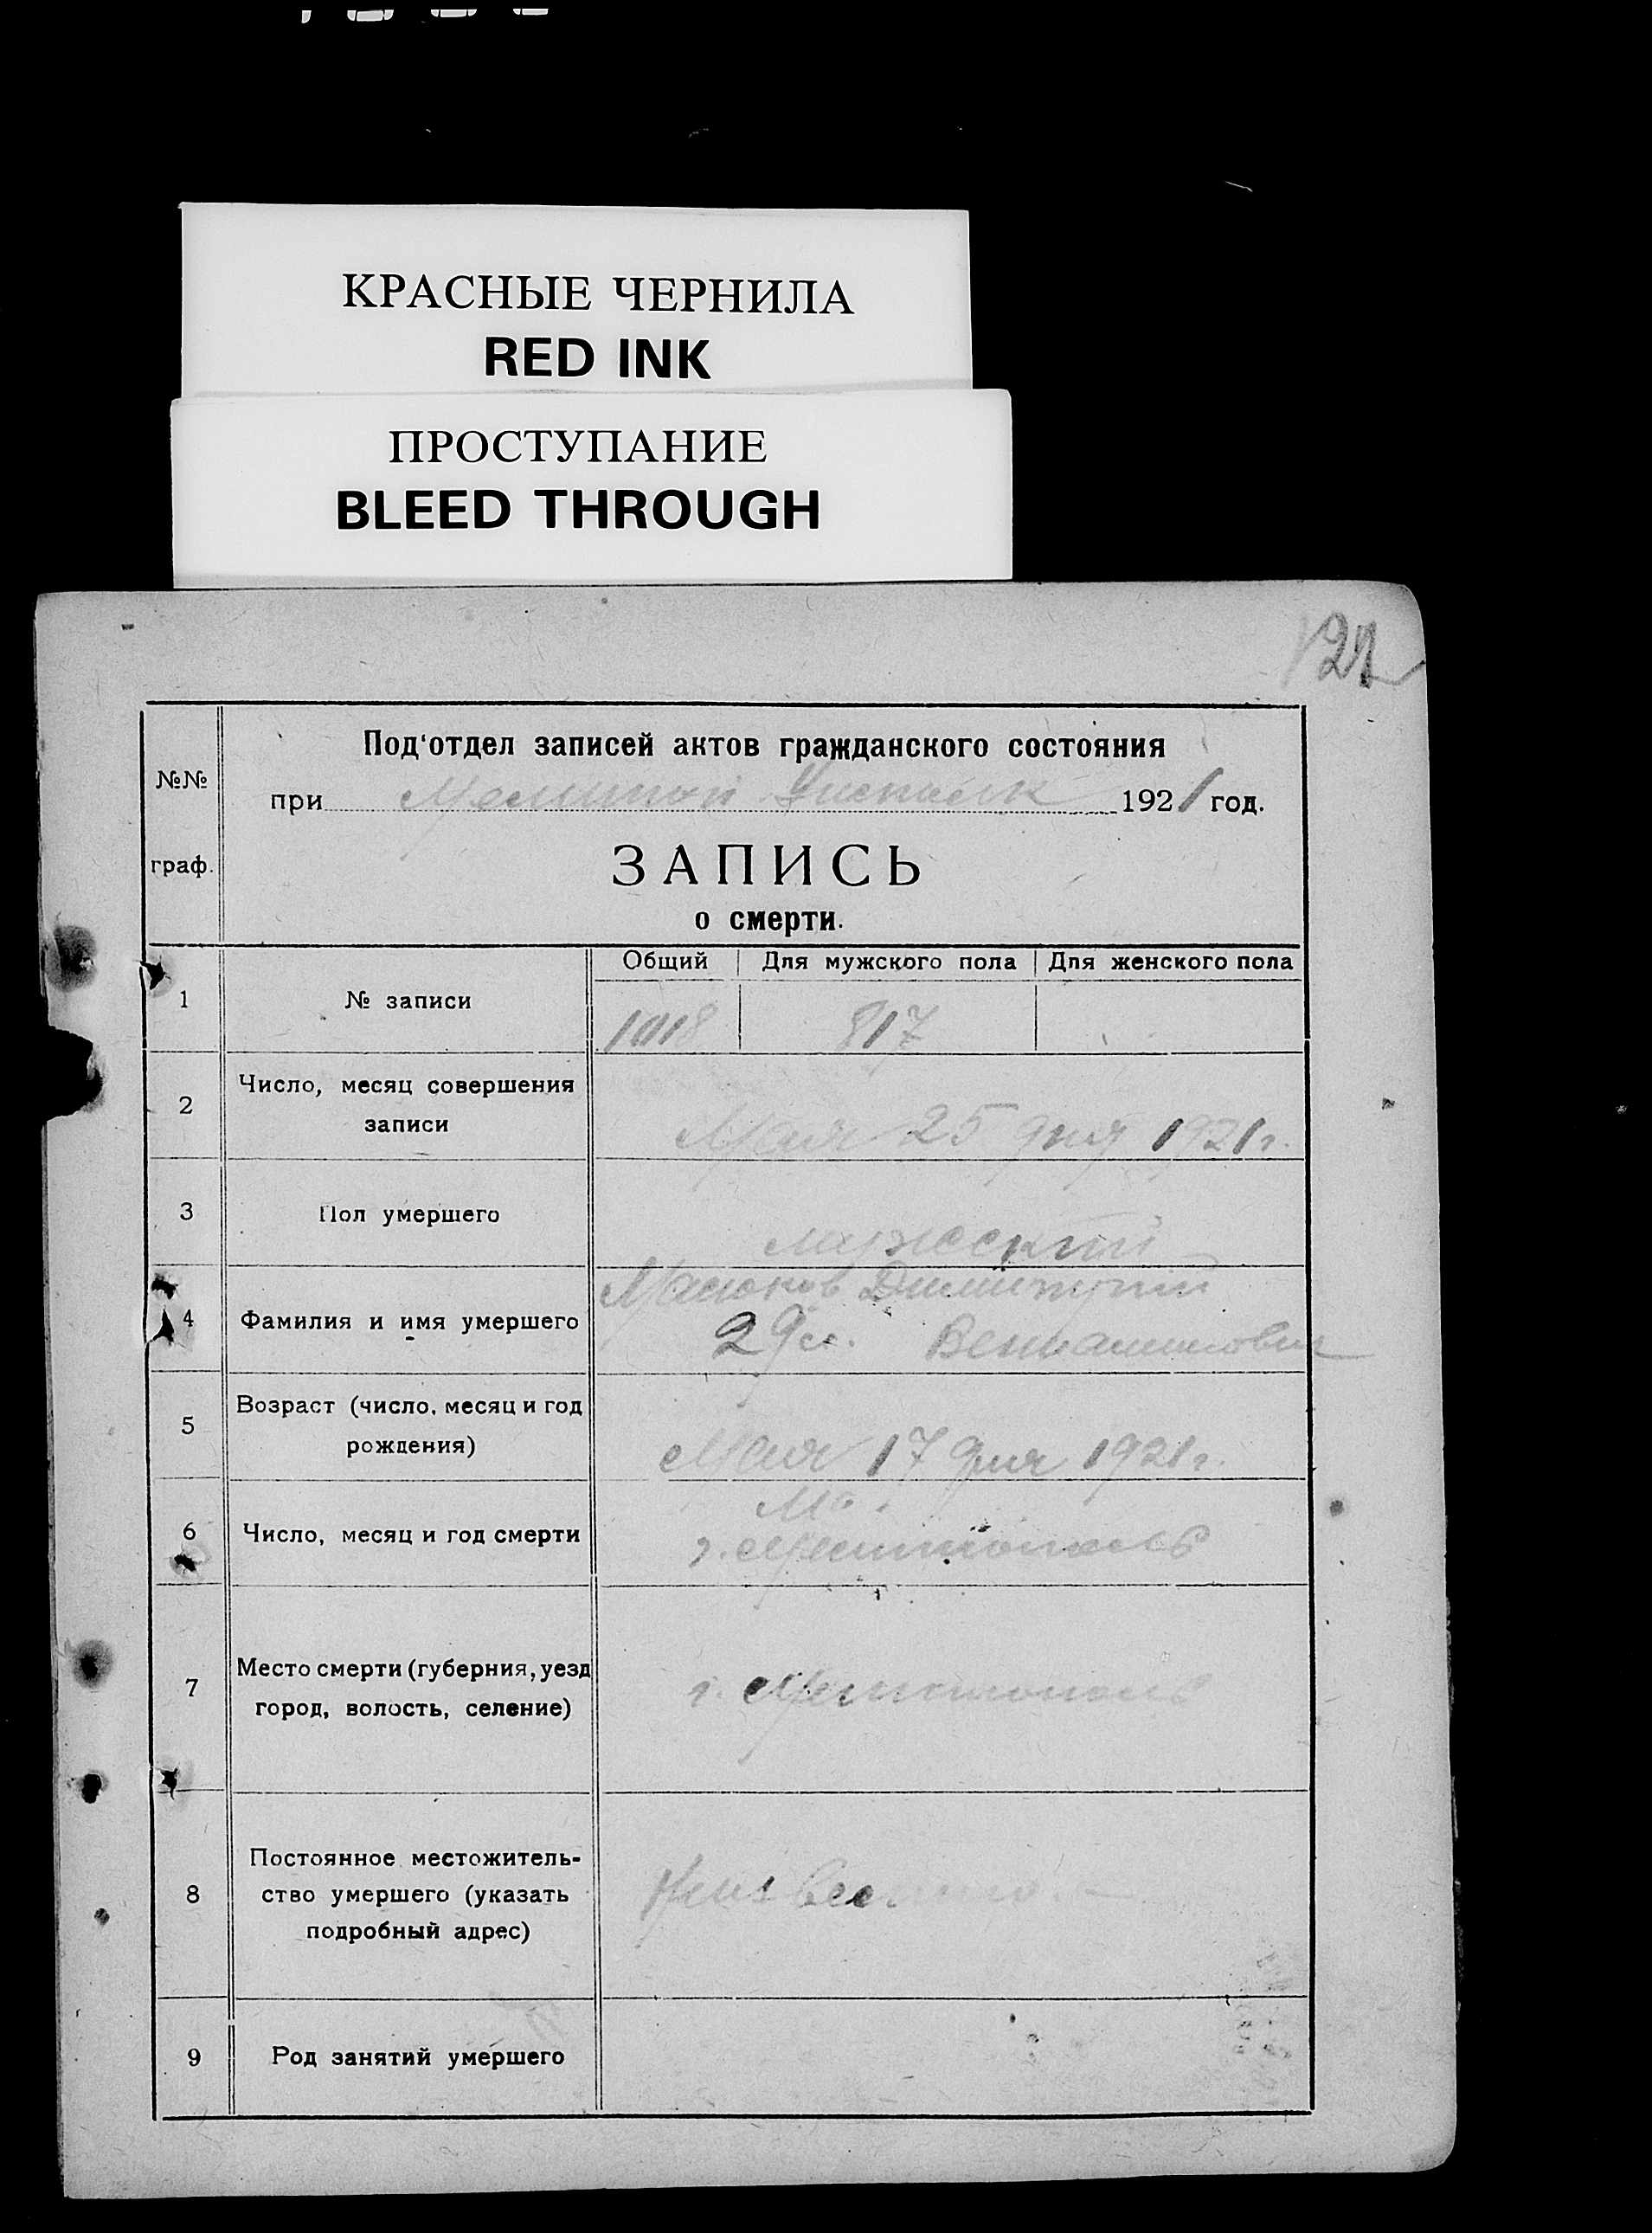 КРАСНЫЕ ЧЕРНИЛА
RED INK
ПРОСТУПАНИЕ
BLEED THROUGH
№№
граф.
Под'отдел записей актов гражданского состояния
при 1921 год.
ЗАПИСЬ
о смерти.
Общий Для мужского пола Для женского пола
1 № записи 1018 817
2 Число, месяц совершения
записи
Мая 25 дня 1921 г.
3 Пол умершего мужской
4 Фамилия и имя умершего
Димитрий
29 л. Вениаминович
5 Возраст (число, месяц и год
рождения)
Мая 17 дня 1921 г.
6 Число, месяц и год смерти
г. Мелитополь
7 Место смерти (губерния, уезд
город, волость, селение)
г. Мелитополь
8 Постоянное местожитель-
ство умершего (указать
подробный адрес)
9 Род занятий умершего